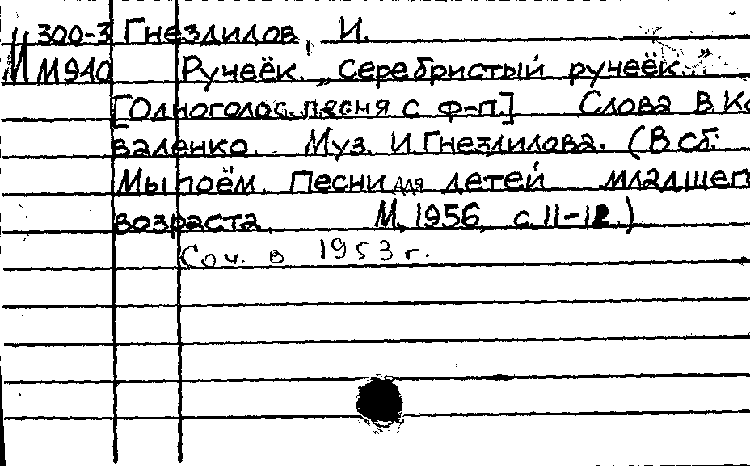 300-3 Гнездилов, И.
М М940 Ручеёк. „Серебристый ручеёк..."
[Одноголос. песня с ф-п.] Слова В. Ко
валенко. Муз. И. Гнездилова. (В сб:
Мы поём. Песни для детей младшег
возраста. М, 1956, с. 11-12.)
Соч. в 1953 г.